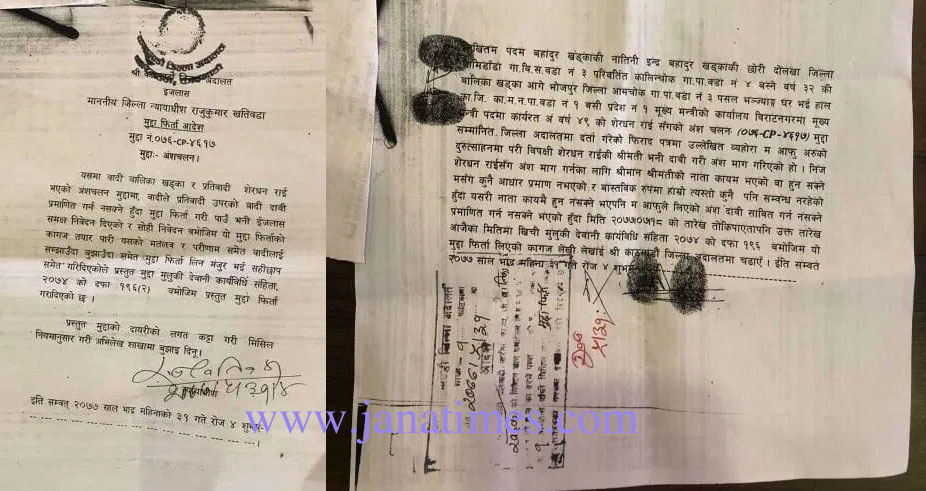 श्री काठमाडौं जिल्ला अदालत
इजलास
माननीय जिल्ला न्यायाधीश राजुकुमार खतिवडा
मुद्दा फिर्ता आदेश
मुद्दा नं.०७६-CP-४६१७
मुद्दाः- अंशचलन।
यसमा वादी बालिका खड्का र प्रतिवादी शेरधन राई
भएको अंशचलन मुद्दामा, वादीले प्रतिवादी उपरको वादी दावी
प्रमाणित गर्न नसक्ने हुँदा मुद्दा फिर्ता गरी पाउँ भनी ईजलास
समक्ष निवेदन दिएको र सोही निवेदन बमोजिम यो मुद्दा फिर्ताको
कागज तयार पारी यसको मतलव र परीणाम समेत वादीलाई
सम्झाउँदा बुझाउँदा समेत मुद्दा फिर्ता लिन मंजुर भई सहीछाप
समेत गरिदिएकोले प्रस्तुत मुद्दा मुलुकी देवानी कार्यविधि संहिता,
२०७४ को दफा १९६(२) बमोजिम प्रस्तुत मुद्दा फिर्ता
गरादिएको छ ।
प्रस्तुत मुद्दाको दायरीको लगत कट्टा गरी मिसिल
नियमानुसार गरी अभिलेख शाखामा बुझाइ दिनू।
इति सम्वत् २०७७ साल भाद्र महिनाको ३१ गते रोज ४ शुभम्-
लिखितम पदम बहादुर खड्काकी नातिनी इन्द्र बहादुर खड्काकी छोरी दोलखा जिल्ला
गा.वि.स.वडा नं ३ परिवर्तित कालिन्चोक गा.पा.वडा नं ४ बस्ने वर्ष ३२ की
बालिका खड्का आगे भोजपुर जिल्ला आमचोक गा.पा.वडा नं ३ पसल भञ्ज्याङ्ग घर भई हाल
का.जि. का.म.न.पा.वडा नं १ बसी प्रदेश नं १ मुख्य मन्त्रीको कार्यालय विराटनगरमा मुख्य
मन्त्री पदमा कार्यरत अं वर्ष ४९ को शेरधन राई संगको अंश चलन (०७६-CP-४६१७) मुद्दा
सम्मानित. जिल्ला अदालतमा दर्ता गरेको फिराद पत्रमा उल्लेखित व्यहोरा म आफु अरुको
दुरुत्साहनमा परी विपक्षी शेरधन राईकी श्रीमती भनी दावी गरी अंश माग गरिएको हो । निज
शेरधन राईसँग अंश माग गर्नका लागि श्रीमान श्रीमतीको नाता कायम भएको वा हुन सक्ने
मसँग कुनै आधार प्रमाण नभएको र बास्तविक रुपमा हाम्रो त्यस्तो कुनै पनि सम्बन्ध नरहेको
हुँदा यसरी नाता कायमै हुन नसक्ने भएपनि म आफुले लिएको अंश दावी सावित गर्न नसक्ने
प्रमाणित गर्न नसक्ने भएको हुँदा मिति २०७७।०७।१८ को तारेख तोकिएतापनि उक्त तारेख
आजैका मितिमा खिची मुलुकी देवानी कार्यविधि संहिता २०७४ को दफा १९६ बमोजिम यो
मुद्दा फिर्ता लिएको कागज लेखी लेखाई श्री काठमाडौं जिल्ला अदालतमा चढाएं । ईति सम्वत
२०७७ साल भाद्र महिना ३१ गते रोज ४ शुभम्
www.janatimes.com